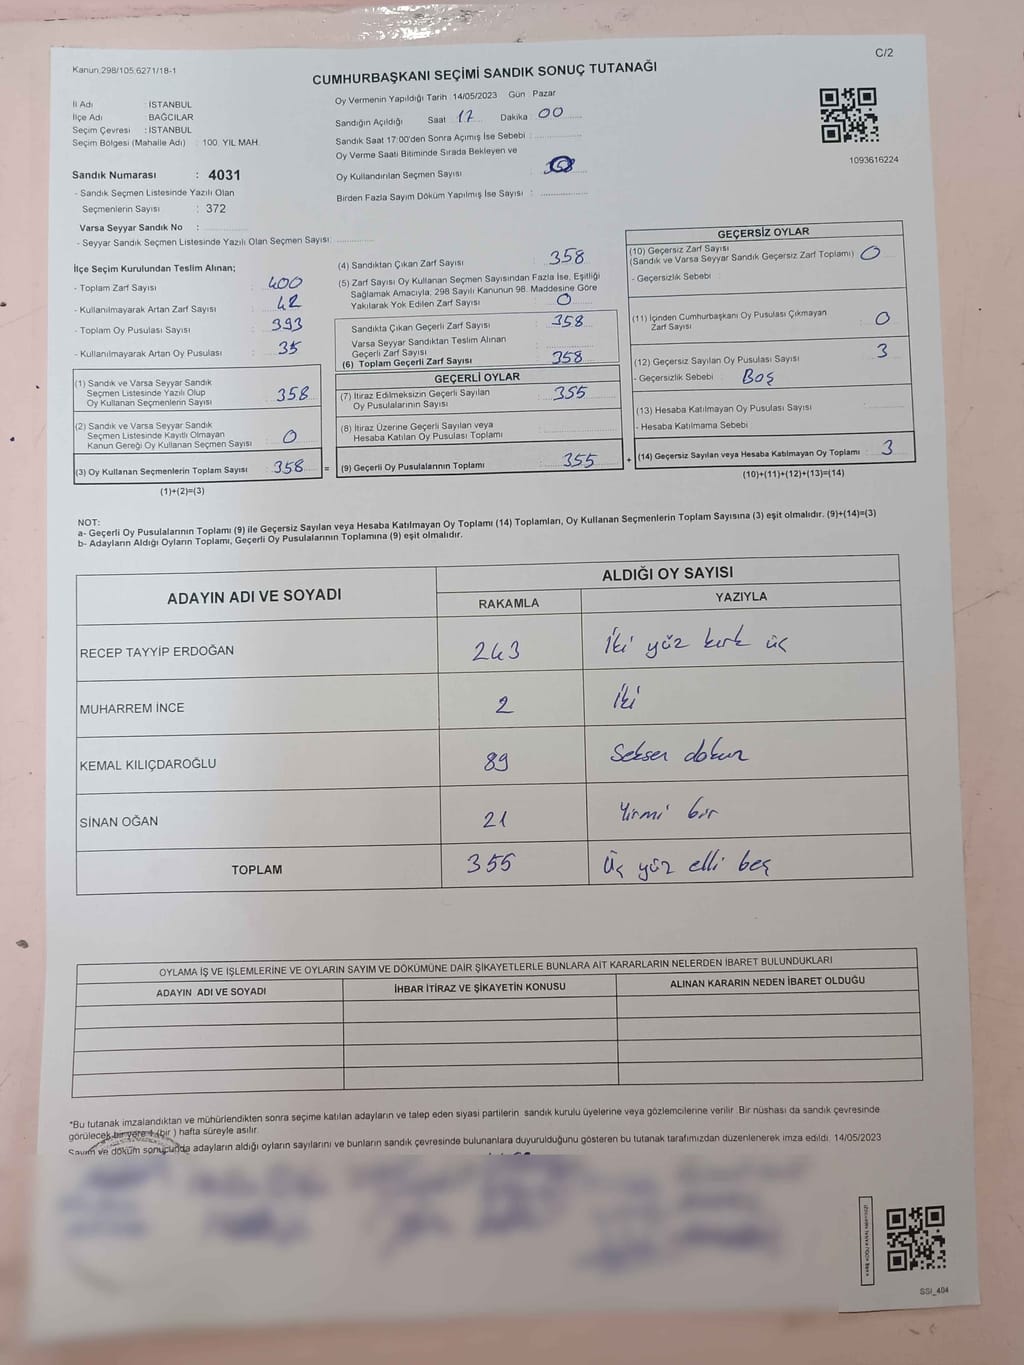 Kanun.298/105.6271/18-1
C/2
CUMHURBAŞKANI SEÇİMİ SANDIK SONUÇ TUTANAĞI
İl Adı : İSTANBUL
İlçe Adı : BAĞCILAR
Seçim Çevresi : İSTANBUL
Seçim Bölgesi (Mahalle Adı) : 100. YIL MAH.
Oy Vermenin Yapıldığı Tarih : 14/05/2023 Gün : Pazar
Sandığın Açıldığı Saat 17 Dakika 00
Sandık Saat 17:00'den Sonra Açımış İse Sebebi :
Oy Verme Saati Bitiminde Sırada Bekleyen ve
Oy Kullandırılan Seçmen Sayısı :
Birden Fazla Sayım Döküm Yapılmış İse Sayısı :
1093616224
Sandık Numarası : 4031
- Sandık Seçmen Listesinde Yazılı Olan
Seçmenlerin Sayısı : 372
Varsa Seyyar Sandık No :
- Seyyar Sandık Seçmen Listesinde Yazılı Olan Seçmen Sayısı:
İlçe Seçim Kurulundan Teslim Alınan;
- Toplam Zarf Sayısı : 400
- Kullanılmayarak Artan Zarf Sayısı : 42
- Toplam Oy Pusulası Sayısı : 393
- Kullanılmayarak Artan Oy Pusulası : 35
(1) Sandık ve Varsa Seyyar Sandık
Seçmen Listesinde Yazılı Olup
Oy Kullanan Seçmenlerin Sayısı : 358
(2) Sandık ve Varsa Seyyar Sandık
Seçmen Listesinde Kayıtlı Olmayan
Kanun Gereği Oy Kullanan Seçmen Sayısı : 0
(3) Oy Kullanan Seçmenlerin Toplam Sayısı : 358
(1)+(2)=(3)
=
(4) Sandıktan Çıkan Zarf Sayısı : 358
(5) Zarf Sayısı Oy Kullanan Seçmen Sayısından Fazla İse, Eşitliği
Sağlamak Amacıyla; 298 Sayılı Kanunun 98. Maddesine Göre
Yakılarak Yok Edilen Zarf Sayısı : 0
Sandıkta Çıkan Geçerli Zarf Sayısı : 358
Varsa Seyyar Sandıktan Teslim Alınan
Geçerli Zarf Sayısı :
(6) Toplam Geçerli Zarf Sayısı : 358
GEÇERLİ OYLAR
(7) İtiraz Edilmeksizin Geçerli Sayılan
Oy Pusulalarının Sayısı : 355
(8) İtiraz Üzerine Geçerli Sayılan veya
Hesaba Katılan Oy Pusulası Toplamı :
(9) Geçerli Oy Pusulalarının Toplamı : 355
+
GEÇERSİZ OYLAR
(10) Geçersiz Zarf Sayısı
(Sandık ve Varsa Seyyar Sandık Geçersiz Zarf Toplamı) : 0
- Geçersizlik Sebebi :
(11) İçinden Cumhurbaşkanı Oy Pusulası Çıkmayan
Zarf Sayısı : 0
(12) Geçersiz Sayılan Oy Pusulası Sayısı : 3
- Geçersizlik Sebebi : Boş
(13) Hesaba Katılmayan Oy Pusulası Sayısı :
- Hesaba Katılmama Sebebi :
(14) Geçersiz Sayılan veya Hesaba Katılmayan Oy Toplamı : 3
(10)+(11)+(12)+(13)=(14)
NOT:
a- Geçerli Oy Pusulalarının Toplamı (9) ile Geçersiz Sayılan veya Hesaba Katılmayan Oy Toplamı (14) Toplamları, Oy Kullanan Seçmenlerin Toplam Sayısına (3) eşit olmalıdır. (9)+(14)=(3)
b- Adayların Aldığı Oyların Toplamı, Geçerli Oy Pusulalarının Toplamına (9) eşit olmalıdır.
ADAYIN ADI VE SOYADI
ALDIĞI OY SAYISI
RAKAMLA YAZIYLA
RECEP TAYYİP ERDOĞAN 243 İki yüz kırk üç
MUHARREM İNCE 2 İki
KEMAL KILIÇDAROĞLU 89 Seksen dokuz
SİNAN OĞAN 21 Yirmi bir
TOPLAM 355 Üç yüz elli beş
OYLAMA İŞ VE İŞLEMLERİNE VE OYLARIN SAYIM VE DÖKÜMÜNE DAİR ŞİKAYETLERLE BUNLARA AİT KARARLARIN NELERDEN İBARET BULUNDUKLARI
ADAYIN ADI VE SOYADI İHBAR İTİRAZ VE ŞİKAYETİN KONUSU ALINAN KARARIN NEDEN İBARET OLDUĞU
*Bu tutanak imzalandıktan ve mühürlendikten sonra seçime katılan adayların ve talep eden siyasi partilerin sandık kurulu üyelerine veya gözlemcilerine verilir. Bir nüshası da sandık çevresinde
görülecek bir yere 1 (bir ) hafta süreyle asılır.
Sayım ve döküm sonucunda adayların aldığı oyların sayılarını ve bunların sandık çevresinde bulunanlara duyurulduğunu gösteren bu tutanak tarafımızdan düzenlenerek imza edildi. 14/05/2023
SSI_404